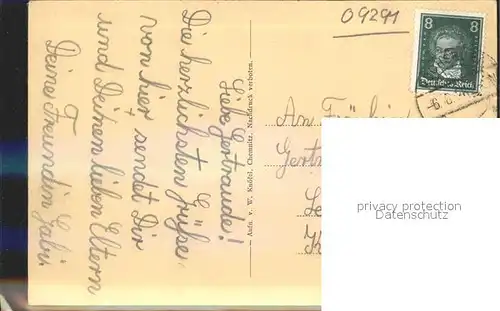 09291
8 8
Deutsches Reich
Liebe Gertraude!
Die herzlichsten Grüße
von hier sendet Dir
und Deinen lieben Eltern
Deine Freundin Gabi.
Aufn. v. W. Knöbel, Chemnitz. Nachdruck verboten.
An
Gert
privacy protection
Datenschutz